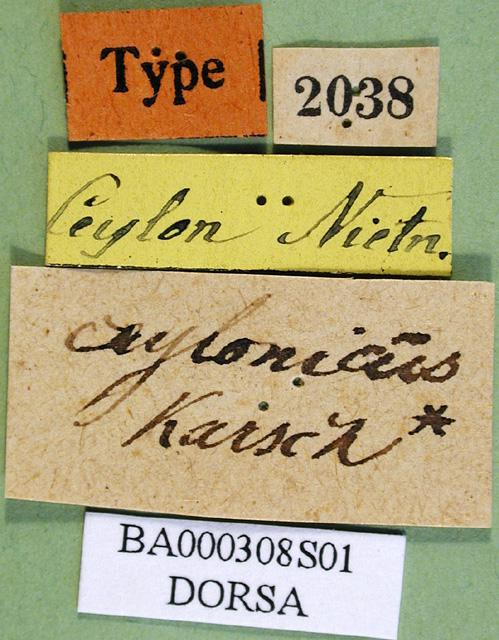 Type
2038
Ceylon Nietn.
ceylonicus
Karsch*
BA000308S01
DORSA